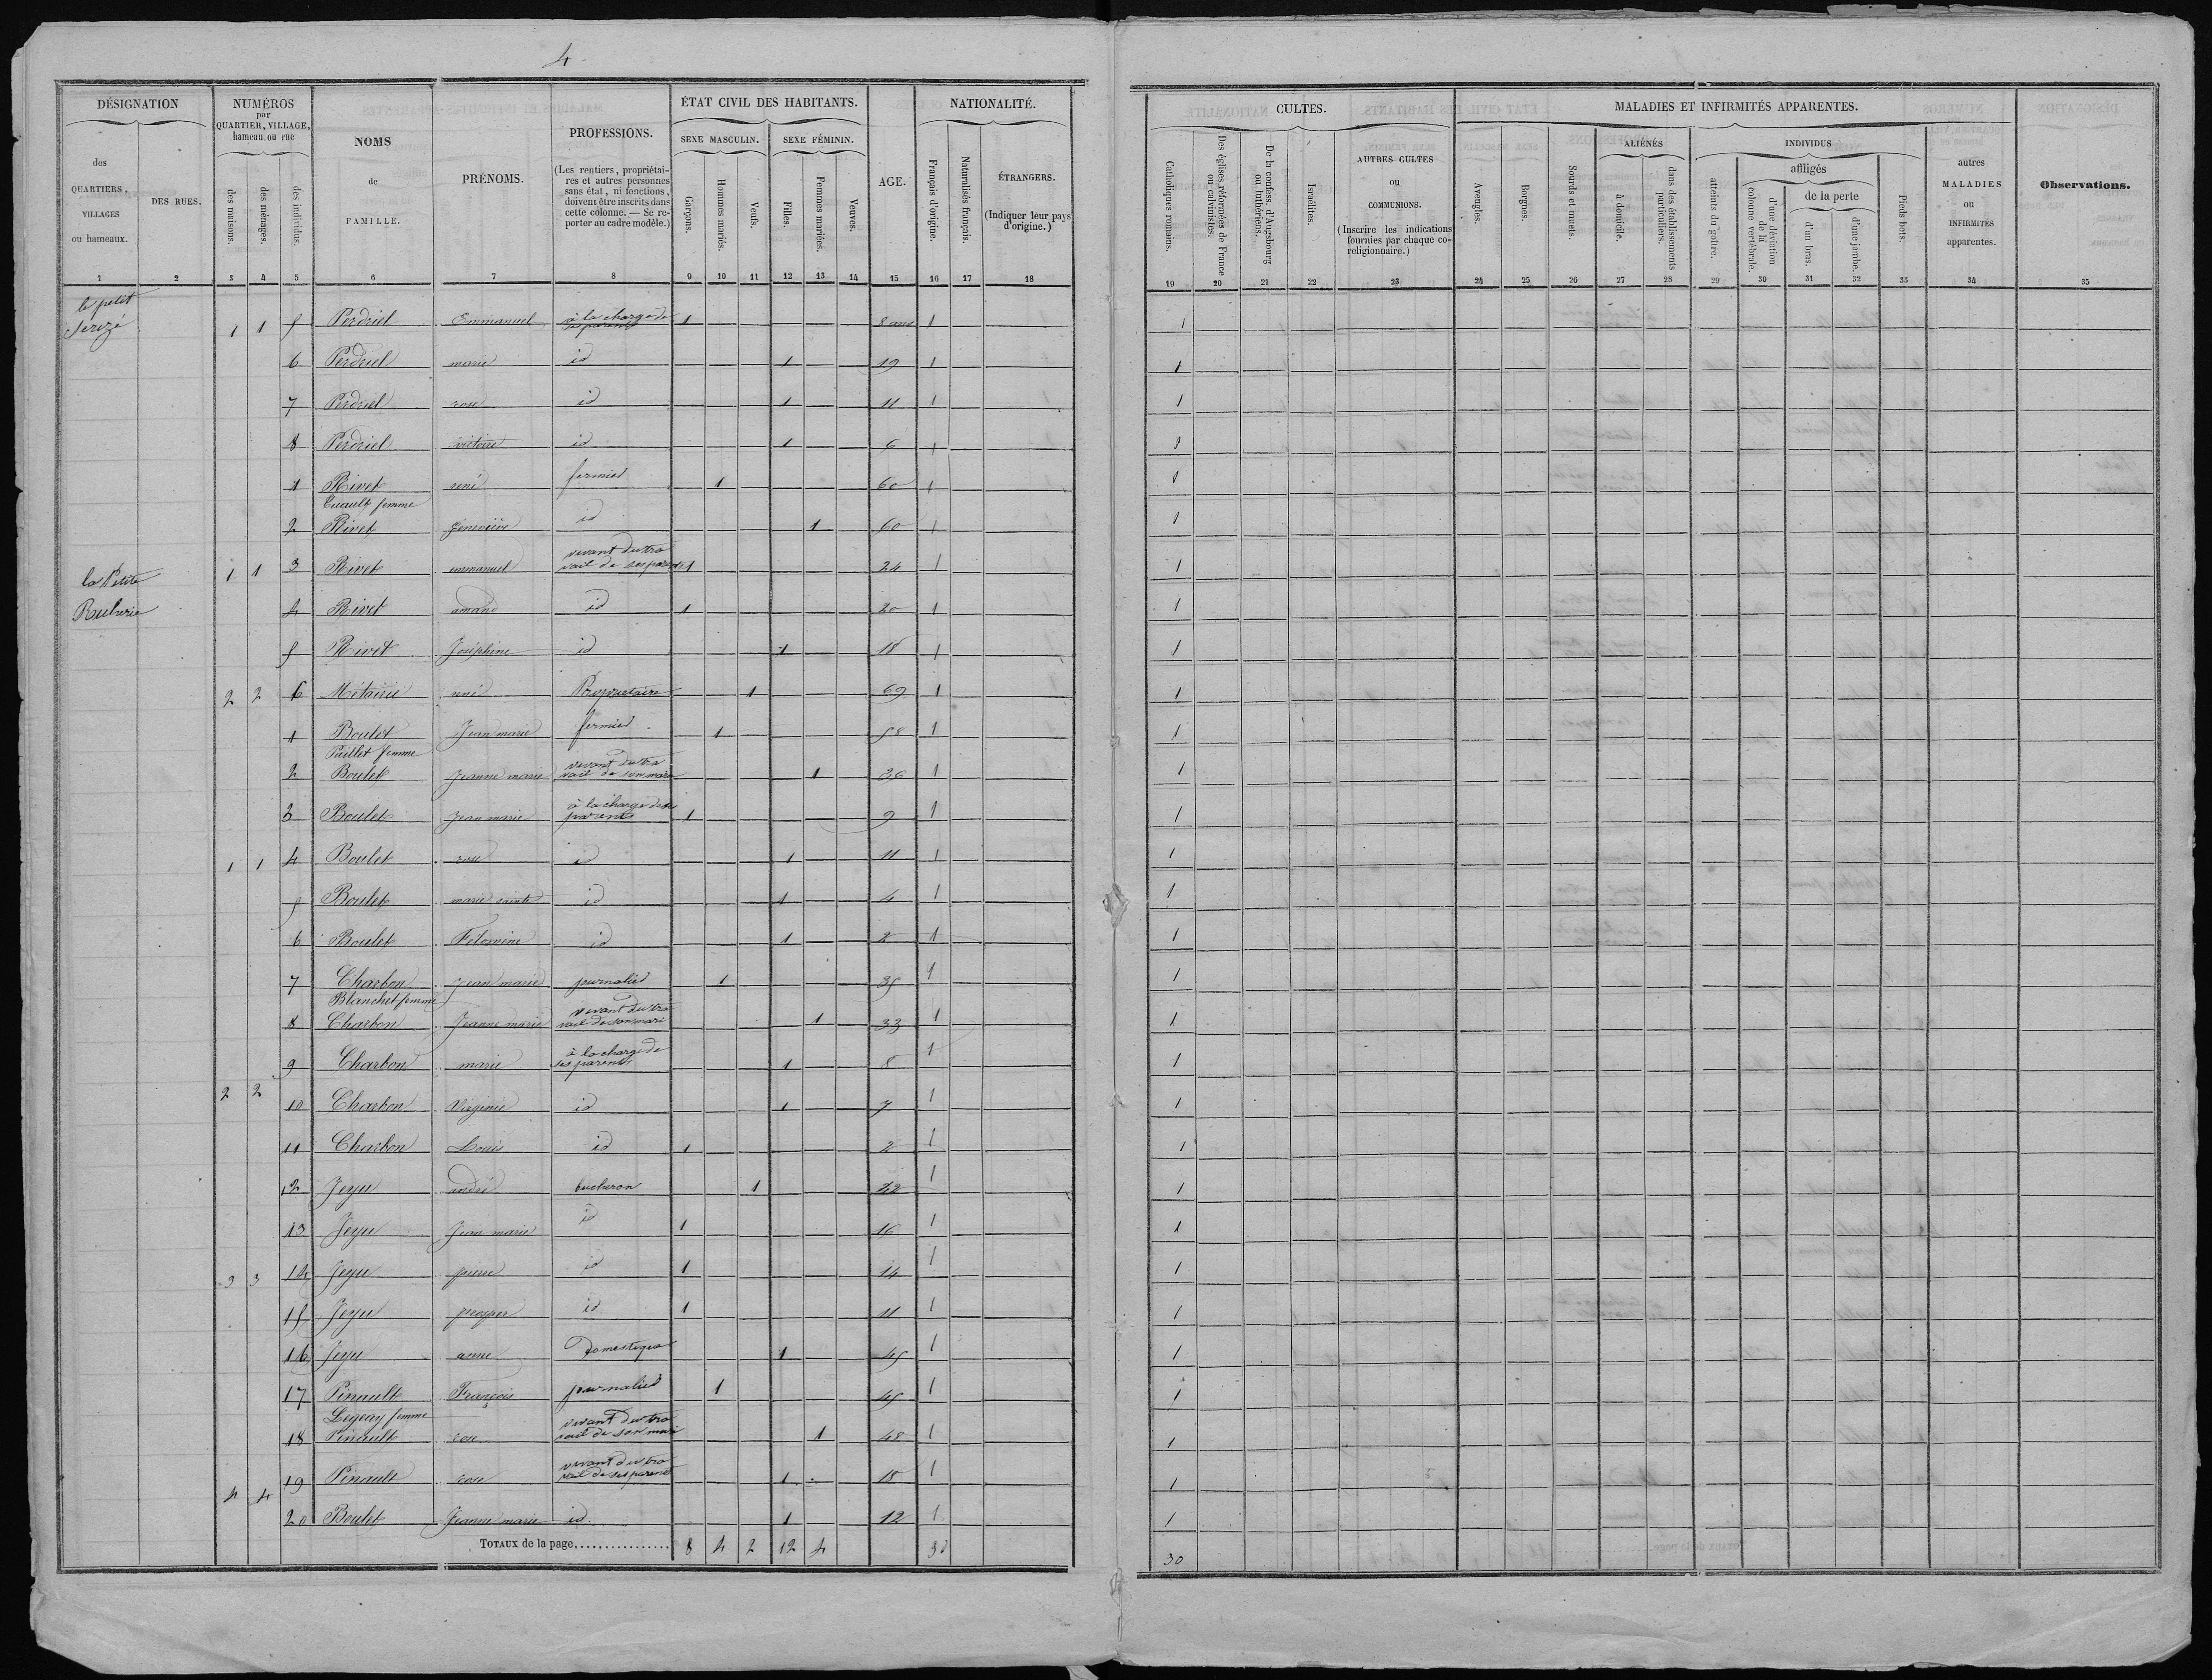 4
DÉSIGNATION
des QUARTIERS, VILLAGES ou hameaux.
DES RUES.
NUMÉROS par QUARTIER, VILLAGE, hameau ou rue
des maisons.
des ménages.
des individus.
NOMS de FAMILLE.
PRÉNOMS.
PROFESSIONS.
(Les rentiers, propriétai-
res et autres personnes
sans état, ni fonctions,
doivent être inscrits dans
cette colonne. — Se re-
porter au cadre modèle.)
ÉTAT CIVIL DES HABITANTS.
SEXE MASCULIN.
SEXE FÉMININ.
Garçons.
Hommes mariés.
Veufs.
Filles.
Femmes mariées.
Veuves.
AGE.
NATIONALITÉ.
Français d'origine.
Naturalisés français.
ÉTRANGERS.
(Indiquer leur pays d'origine.)
1 2 3 4 5 6 7 8 9 10 11 12 13 14 15 16 17 18
CULTES.
Catholiques romains.
Des églises réformées de France ou calvinistes.
De la confess. d'Augsbourg ou luthériens.
Israélites.
AUTRES CULTES
ou
COMMUNIONS.
(Inscrire les indications
fournies par chaque co-
religionnaire.)
MALADIES ET INFIRMITÉS APPARENTES.
Aveugles.
Borgnes.
Sourds et muets.
ALIÉNÉS
à domicile.
dans des établissements particuliers.
INDIVIDUS
affligés
atteints du goître.
d'une déviation de la colonne vertébrale.
de la perte
d'un bras.
d'une jambe.
Pieds bots.
autres
MALADIES
ou
INFIRMITÉS
apparentes.
Observations.
19 20 21 22 23 24 25 26 27 28 29 30 31 32 33 34 35
le petit
Serizé 1 1 5 Perdriel Emmanuel à la charge de ses parents 1 8 ans 1 1
6 Perdriel marie id 1 19 1 1
7 Perdriel rose id 1 11 1 1
8 Perdriel victoire id 1 6 1 1
1 Rivet rené fermier 1 60 1 1
femme
2 Rivet geneviève id 1 60 1 1
la Petite 1 1 3 Rivet emmanuel vivant du tra
vail de ses parents 1 24 1 1
4 Rivet amand id 1 20 1 1
5 Rivet Joséphine id 1 18 1 1
2 2 6 Métairie rené Propriétaire 1 69 1 1
1 Boulet Jean marie fermier 1 58 1 1
Paillet femme
2 Boulet Jeanne marie vivant du tra
vail de son mari 1 36 1 1
3 Boulet Jean marie à la charge de
parents 1 9 1 1
1 1 4 Boulet rose id 1 11 1 1
5 Boulet marie sainte id 1 4 1 1
6 Boulet Felomène id 1 2 1 1
7 Charbon Jean marie journalier 1 35 1 1
Blanchet femme
8 Charbon Jeanne marie vivant du tra
vail de son mari 1 33 1 1
9 Charbon marie à la charge de
ses parents 1 8 1 1
2 2
10 Charbon Virginie id 1 7 1 1
11 Charbon Louis id 1 2 1 1
12 Jeyu andré bucheron 1 42 1 1
13 Jeyu Jean marie id 1 16 1 1
3 3 14 Jeyu pierre id 1 14 1 1
15 Jeyu prosper id 1 11 1 1
16 Jeyu anne Domestique 1 45 1 1
17 Pinault François journalier 1 45 1 1
Legeay femme
18 Pinault rose vivant du tra
vail de son mari 1 48 1 1
19 Pinault rose vivant du tra
vail de ses parents 1 18 1 1
4 4
20 Boulet Jeanne marie id 1 12 1 1
TOTAUX de la page 8 4 2 12 4 30 30